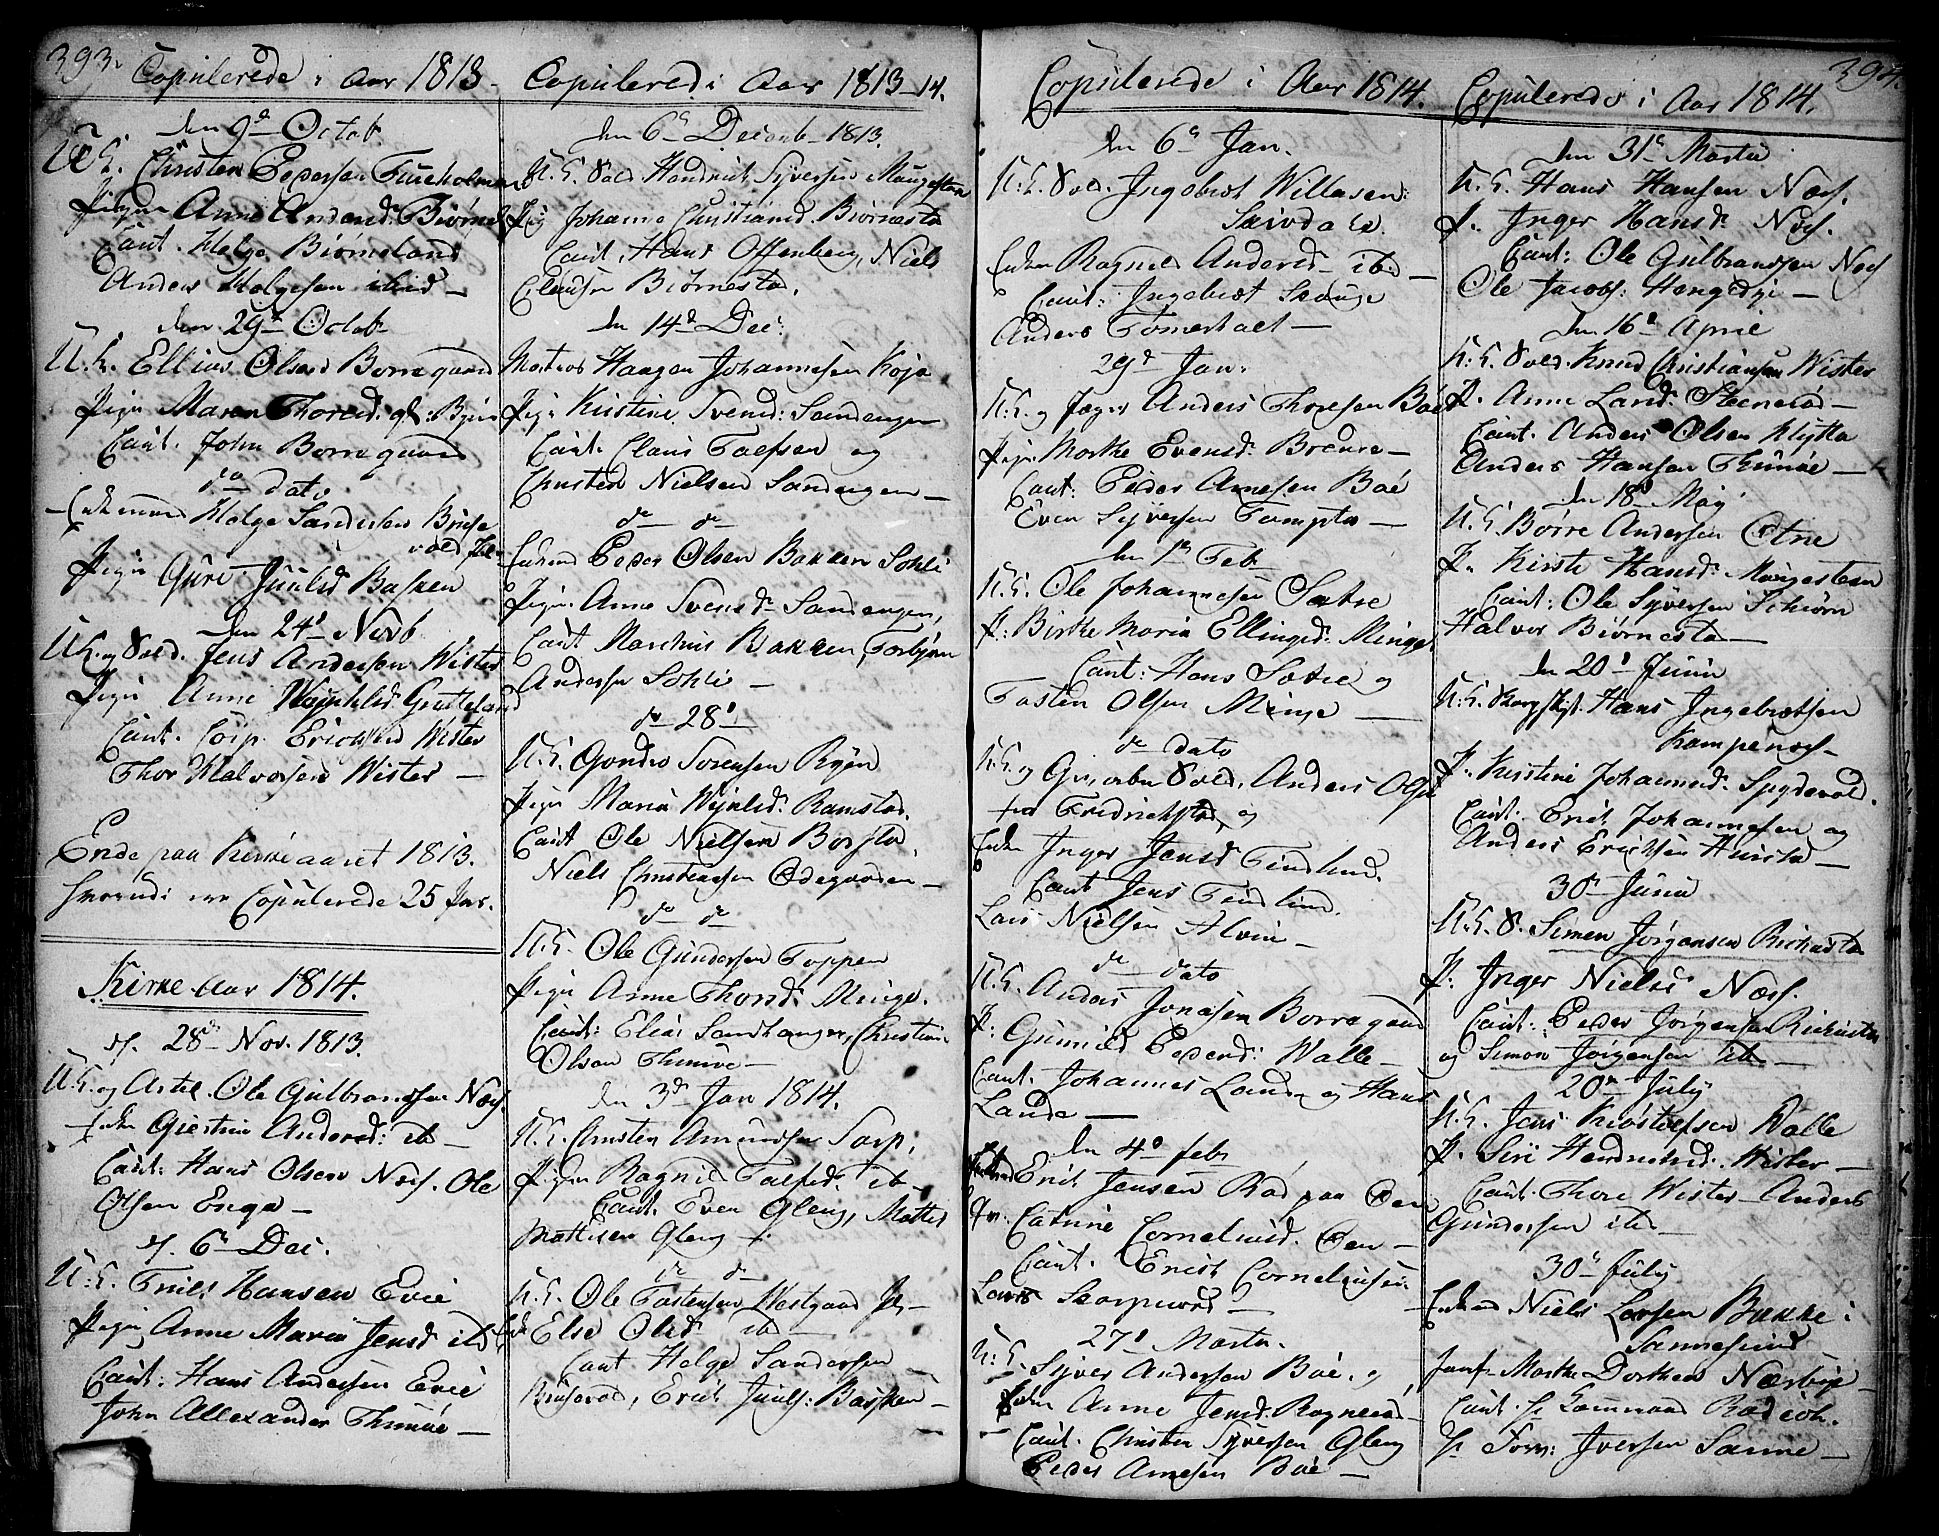 393.
Copulerede i Aar 1813
den 9d Octob
U. K. Christen Pedersen Furuholmen
Pigen Anne Andersd: Biørnel
Caut. Helge Biørneland
Anders Helgesen ibid —
den 29d Octob
U. K. Ellias Olsen Borregaard
Pigen Maren Thoresd:
Caut. John Borregaard
do dato
Enkemand Helge Sandersen Brusevold
Pigen Guri Juulsd Basken
den 24d Novb
UK. og Sold. Jens Andersen Wister
Pigen Anne
Caut. Corp. Ericksen Wister
Thor Halvorsen Wister —
Ende paa Kirkeaaret 1813.
Copulerede 25 Par.
Kirke Aar 1814.
d. 28de Nov. 1813.
U. K. og Ole Gulbrandsen Næss.
Enken Giertrue Andersd: ib —
Caut: Hans Olsen Næss. Ole
Olsen Enga —
d. 6te Dec.
U: K. Truls Hansen Evie
Pigen Anne Maria Jensd ibd
Caut: Hans Andersen Evie
John Allexander Thunøe —
Copulered i Aar 1813_14.
den 6te Decemb 1813.
U. K. Sold Hendrick Syversen Maugesten
Pig Johanne Christiansd Biørnestad
Caut. Hans Offenberg, Niels
Clausen Biørnestad.
den 14d Dec:
Matros Haagen Johannesen Kojo
Pig: Kristine Svensd: Sandengen
Caut. Claus Tolfsen og
Christen Nielsen Sandengen —
do do
Enkemd Peder Olsen Bakken Sohli
Pigen Anne Svensd Sandengen,
Caut Marthus Bakken, Torbjørn
Andersen Sohli —
do 28d
U. K. Gondro Sørensen Ryen
Pigen Maria Ramstad.
Caut Ole Nielsen Borstad,
Niels Christiansen Ødegaarden —
do do
U. K. Ole Gundersen Toppen
Pigen Anne Thorsd: Minge.
Caut: Elias Sandhanger, Christian
Olsen Thunøe —
den 3d Jan 1814.
U. K. Christen Amundsen Sarp,
Pigen Ragnild Tolfsd: ib —
Caut. Even Gleng, Mattis
Mattisen Gleng —
do do
U. K. Ole Tostensen Westgaard
Enk Else Olsd ib —
Caut Helge Sandersen
Brusevold, Erick Juuls: Basken —
Copulerede i Aar 1814.
den 6te Jan.
U: K. Sold. Ingebret Willasen:
Enken Ragnild Andersd — ib —
Caut: Ingebret Skauge
Anders Tomerholt —
29d Jan.
U: K. og Jæger Anders Thoresen Boe
Pigen Marthe Evensd: Bredre —
Caut: Peder Arnesen Boe
Even Syversen Tompta —
den 1te Feb
U. K. Ole Johannesen Sætre
P: Birthe Maria Ellingsd: Minge
Caut: Hans Sætre og
Tosten Olsen Minge —
do dato
U. K. og Sold. Anders Olse
fra Fredrichstad, og
Enken Inger Jensd Findlund.
Caut Jens Findlund.
Lars Nielsen Alvim —
do dato
U. K. Anders Jonasen Borregaard
P: Gunild Pedersd: Walle —
Caut. Johannes Lande og Hans
Lande —
den 4d Feb
Enkemd Erik Jensen Rød paa Øen
Catrine Corneliusd. Øen —
Caut. Erick Corneliussen
Lars Skorpurød —
27d Marts.
U: K. Syver Andersen Boe. og
Enken Anne Jensd: Rogneød
Caut. Christen Syversen Gleng
Peder Arnesen Boe —
394.
Copulerede i Aar 1814.
den 31te Martii
U. K. Hans Hansen Næss.
P. Inger Hansd: Næss.
Caut: Ole Gulbrandsen Næss
Ole Jacobs: Hengedye —
den 16d April
U: K. Sold. Knud Christiansen Wister
P. Anne Larsd: Steenerød —
Caut. Anders Olsen Klytta
Anders Hansen Thunøe —
den 18d May
U. K. Børre Andersen Otne
P. Kirsti Hansd: Maugesteen
Caut: Ole Syversen Schiørn
Halvor Biørnestad —
den 20d Junii
U. K. Hans Ingebretsen
Kampenes —
P. Kristine Johannesd: Spydevold.
Caut. Erik Johannesen og
Anders Ericksen Hursta —
30te Junii
U. K. S. Simen Jørgensen Richusta
P. Inger Nielsd Næss.
Caut: Peder Jørgensen Richusta
og Simon Jørgensen ib —
20de July
U. K. Jens Kristofsen Walle
P. Siri Hendricksd. Wister —
Caut. Thore Wister — Anders
Gundersen ib —
30te July
Enkemd Niels Larsen Bakke i
Sannesund
Jomf. Marthe Dorthea Nærbye
Caut. Hr
Hr Iversen Sanne —